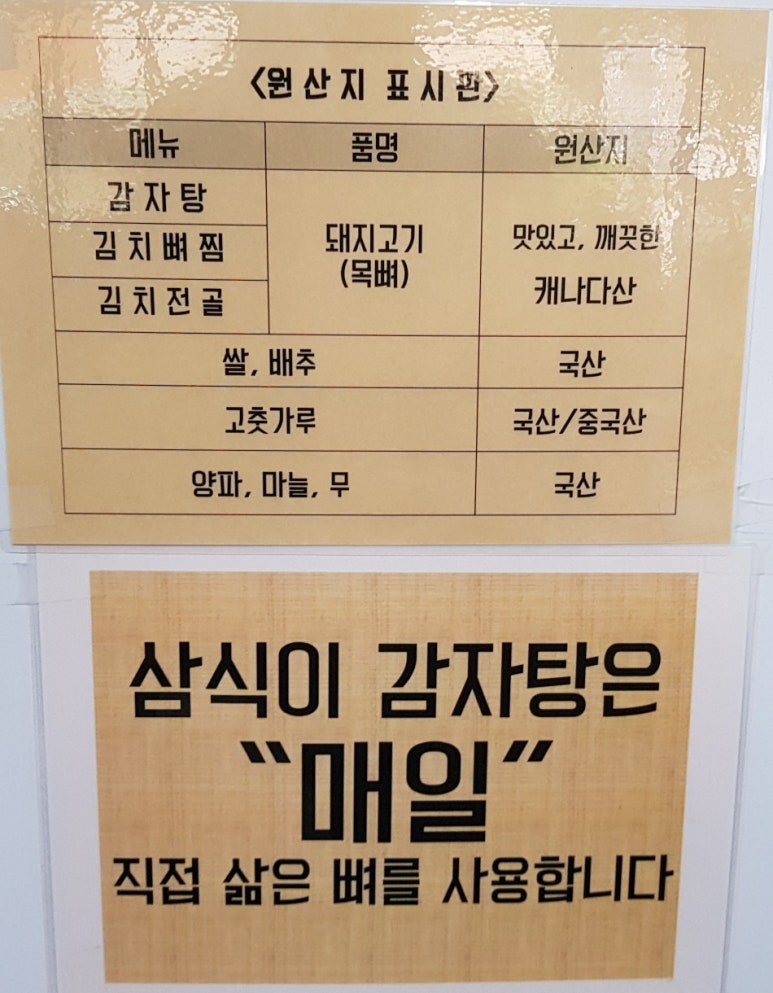 <원산지 표시판>
메뉴 품명 원산지
감자탕
김치뼈찜
김치전골
돼지고기
(목뼈)
맛있고, 깨끗한
캐나다산
쌀, 배추 국산
고춧가루 국산/중국산
양파, 마늘, 무 국산
삼식이 감자탕은
“매일”
직접 삶은 뼈를 사용합니다